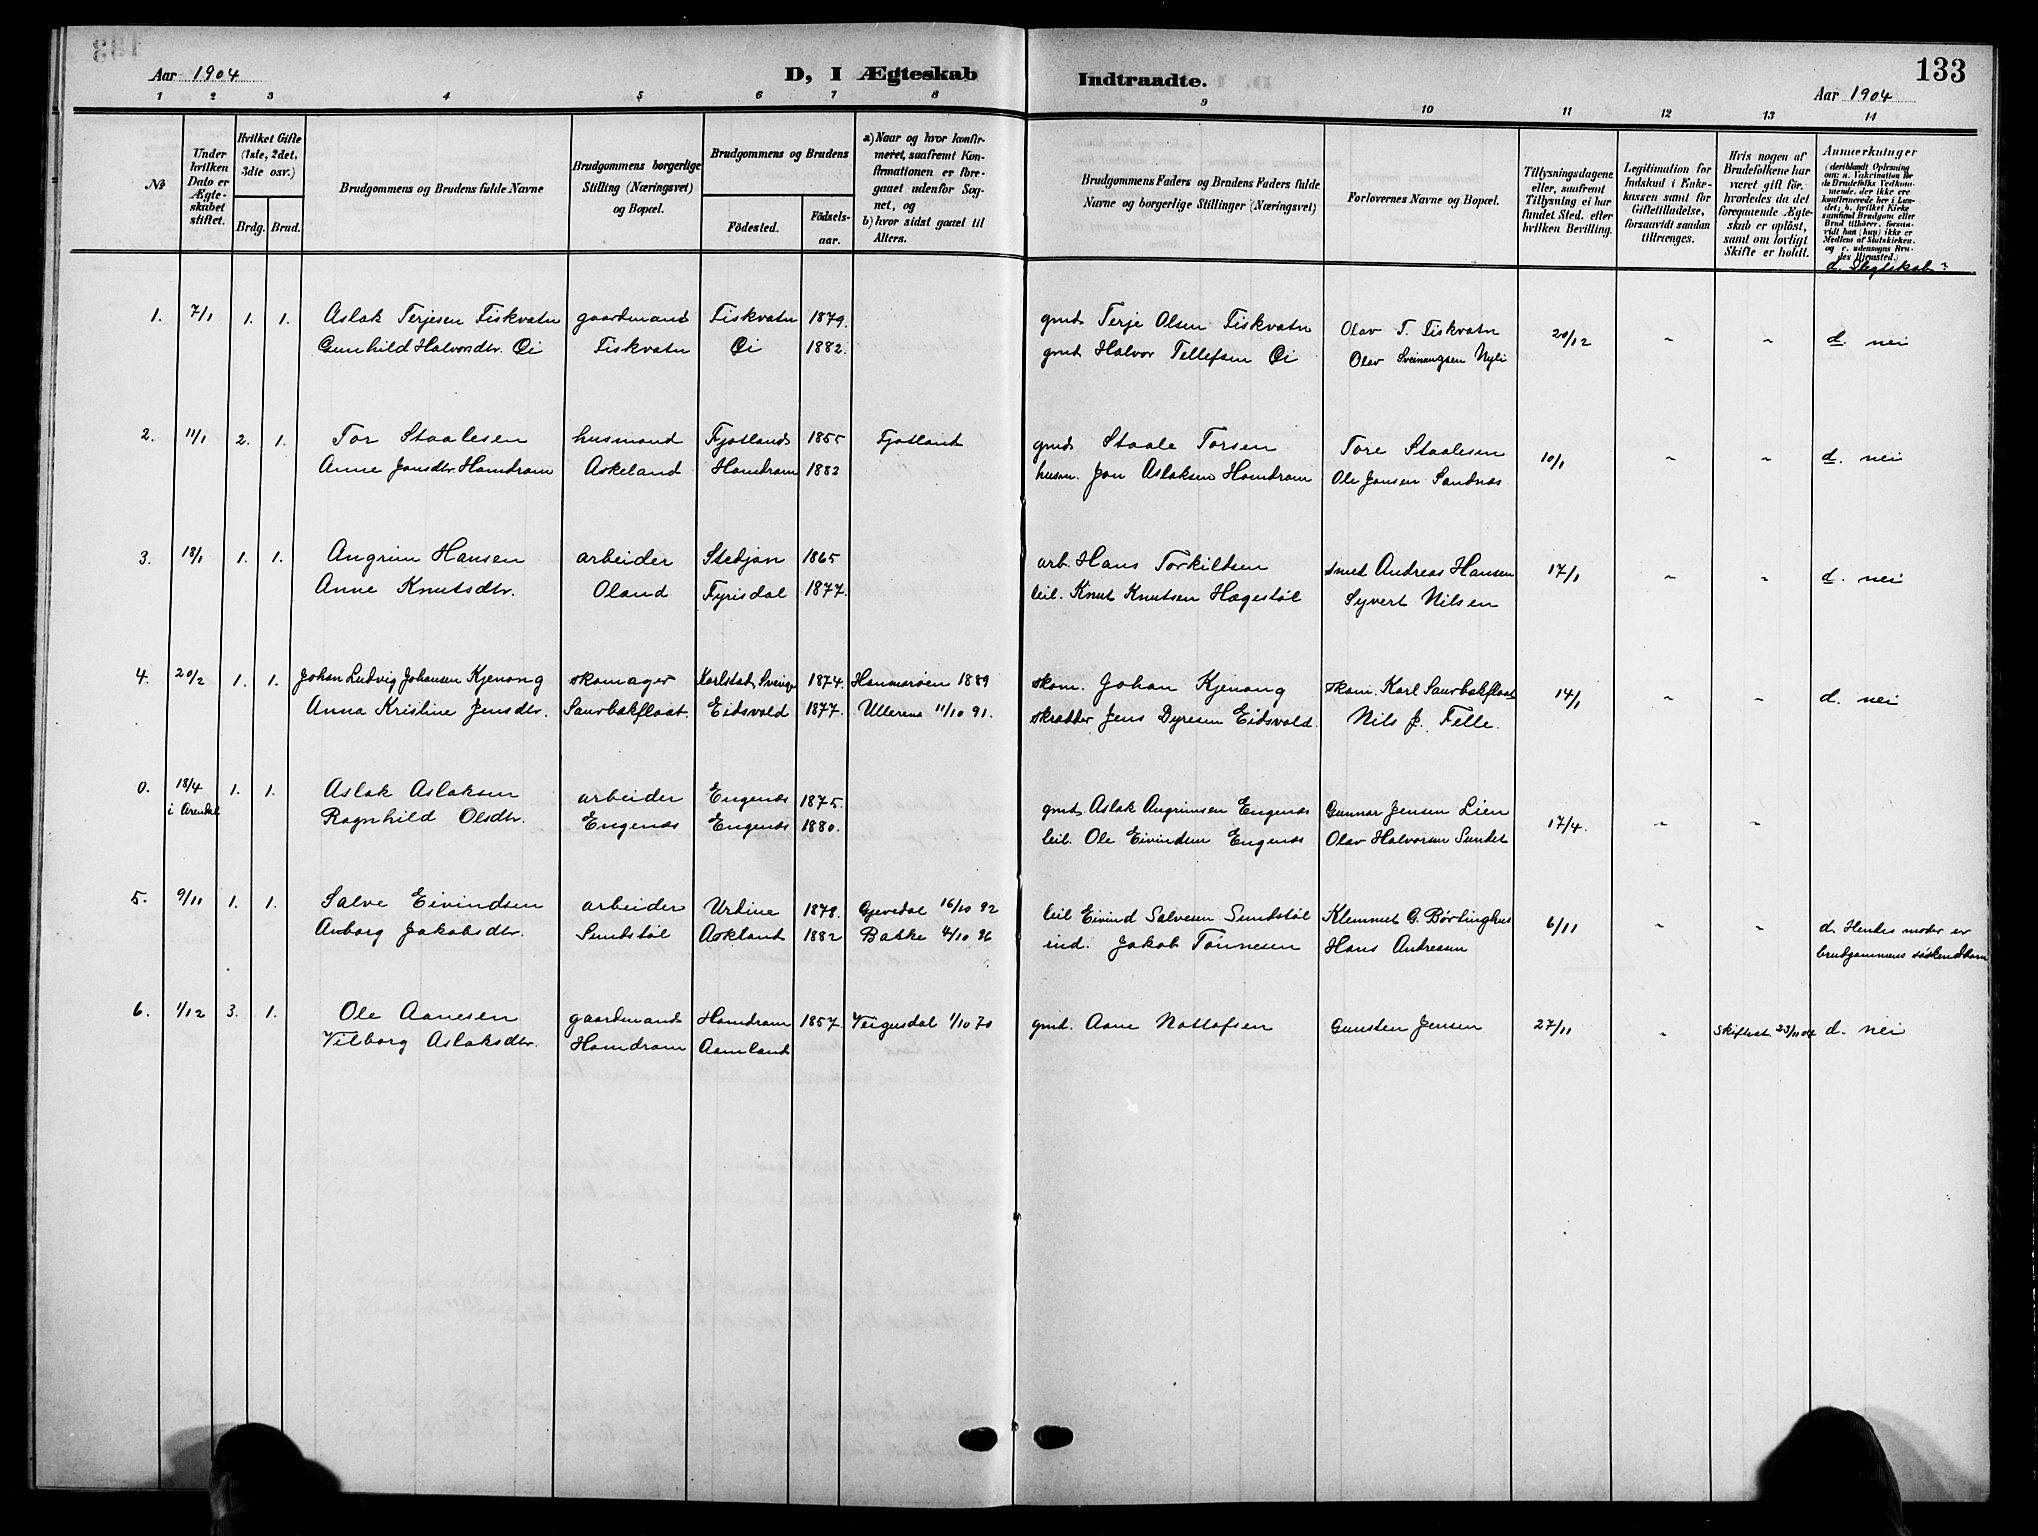 133
Aar 1904
D, I Ægteskab Indtraadte.
Aar 1904
1 2 3 4 5 6 7 8 9 10 11 12 13 14
No
Under hvilken Dato er Ægteskabet stiftet.
Hvilket Gifte (1ste, 2det, 3die osv.)
Brdg. Brud.
Brudgommens og Brudens fulde Navne
Brudgommens borgerlige Stilling (Næringsvei) og Bopæl.
Brudgommens og Brudens
Fødested.
Fødselsaar.
a) Naar og hvor konfirmeret, saafremt Konfirmationen er foregaaet udenfor Sognet, og
b) hvor sidst gaaet til Alters.
Brudgommens Faders og Brudens Faders fulde Navne og borgerlige Stillinger (Næringsvei)
Forlovernes Navne og Bopæl.
Tillysningsdagene eller, saafremt Tillysning ei har fundet Sted, efter hvilken Bevilling.
Legitimation for Indskud i Enkekassen samt for Giftetilladelse, forsaavidt saadan tiltrænges.
Hvis nogen af Brudefolkene har været gift før, hvorledes da det foregaaende Ægteskab er opløst, samt om lovligt Skifte er holdt.
Anmærkninger
(deriblandt Oplysning om: a. Vakcination for de Brudefolks Vedkommende, der ikke ere konfirmerede her i Landet; b. hvilket Kirkesamfund Brudgom eller Brud tilhører, forsaavidt han (hun) ikke er Medlem af Statskirken, og c. udensogns Brudes Hjemsted.)
d. Slegtskab?
1. 7/1 1. 1. Aslak Terjesen Fiskvatn gaardmand Fiskvatn 1879. gmd Terje Olsen Fiskvatn Olav T. Fiskvatn 20/12 " " d. nei
Gunhild Halvorsdtr. Øi Fiskvatn Øi 1882. gmd Halvor Tellefsen Øi Olav Sveinungsen Nyli
2. 11/1 2. 1. Tor Staalesen husmand Fjotland 1855 Fjotland gmd Staale Torsen Tore Staalesen 10/1 " " d. nei
Anne Jonsdtr. Hamdram Askeland Hamdram 1882 husm. Jon Aslaksen Hamdram Ole Jansen Sandnæs
3. 18/1 1. 1. Angrim Hansen arbeider Stedjan 1865 arb. Hans Torkildsen smed Andreas Hansen 17/1 " " d. nei
Anne Knutsdtr. Oland Fyrisdal 1877. leil. Knut Knutsen Hægestøl Syvert Nilsen
4. 20/2 1. 1. Johan Ludvig Johansen Kjenong skomager Karlstad, Sverige 1874. Hammarøen 1889 skom. Johan Kjenong skom. Karl Saurbakflaat 14/1 " " d. nei
Anna Kristine Jensdtr. Saurbakflaat. Eidsvold 1877. Ullerens 11/10 91. skrædder Jens Dyresen Eidsvold Nils J. Felle.
0. 18/4 1. 1. Aslak Aslaksen arbeider Engenæs 1875. gmd Aslak Angrimsen Engenæs Gunnar Jensen Lien 17/4. " "
i Arendal Ragnhild Olsdtr. Engenæs Engenæs 1880. leil. Ole Eivindsen Engenæs Olav Halvorsen Sundet
5. 9/11 1. 1. Salve Eivindsen arbeider Urdine 1878. Gjevedal 16/10 92 leil Eivind Salvesen Sundstøl Klemmet G. Børlinghus 6/11 " " d. Hendes moder er
Anborg Jakobsdtr. Sundstøl Askland 1882 Bakke 4/10 96 ind. Jakob Tønnesen Hans Andreasen brudgommens søskendbarn
6. 1/12 3. 1. Ole Aanesen gaardmand Hamdram 1857. Veigusdal 1/10 70 gmd. Aane Nottofsen Gunsten Jensen 27/11 " Skifteat. 23/11 04 d. nei
Vilborg Aslaksdtr. Hamdram Aamland